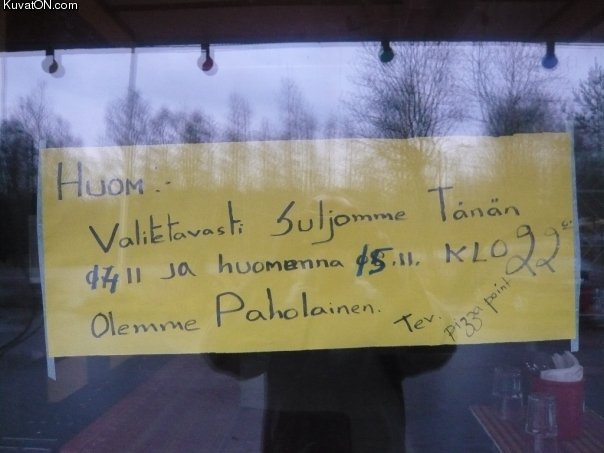 KuvatON.com
HUOM:-
Valitetavasti Suljomme Tänän
14.11 ja huomenna 15.11. KLO 22
Olemme Paholainen.
Tev. pizza point